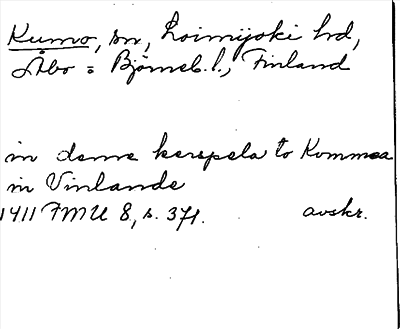 Kumo, sn, Loimijoki hd,
Åbo = Björneb. l., Finland
in deme kerspela to Kommea
in Vinlande
1411 FMU 8, s. 371. avskr.